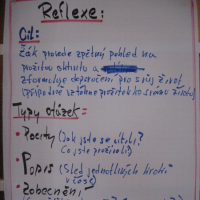 Reflexe:
Cíl:
Žák provede zpětný pohled na
prožitou aktivitu a
zformuluje doporučení pro svůj život
(případně vztáhne prožitek ke svému životu)
Typy otázek=
• Pocity (Jak jste se cítili?
Co jste prožívali?)
• Popis (Sled jednotlivých kroků
v čase)
• Zobecnění